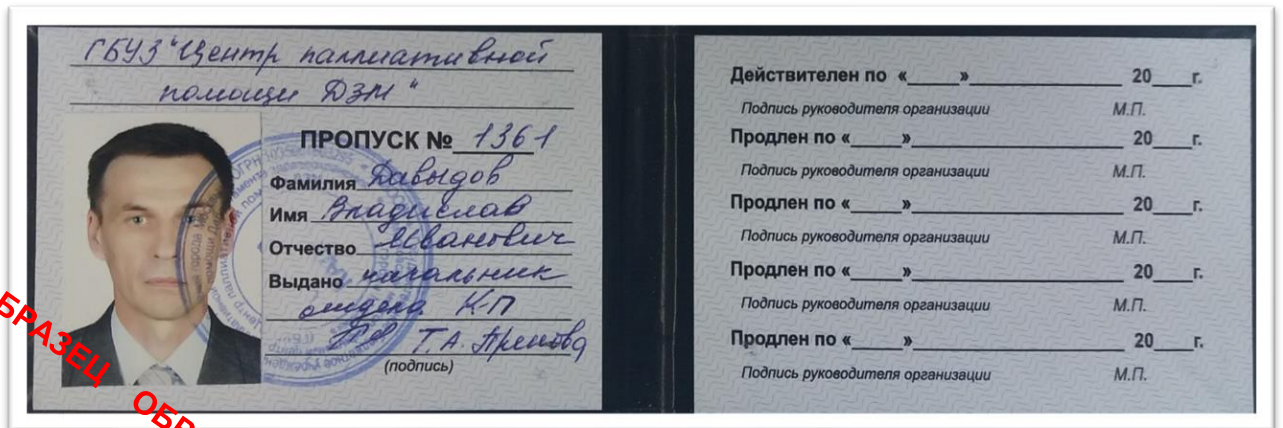 ГБУЗ "Центр паллиативной
помощи ДЗМ"
ПРОПУСК № 1361
Фамилия Давыдов
Имя Владислав
Отчество Иванович
Выдано начальник
отдела КП
Т.А.
(подпись)
ОБРАЗЕЦ
Действителен по «_____»____________________ 20___г.
Подпись руководителя организации М.П.
Продлен по «_____»____________________ 20___г.
Подпись руководителя организации М.П.
Продлен по «_____»____________________ 20___г.
Подпись руководителя организации М.П.
Продлен по «_____»____________________ 20___г.
Подпись руководителя организации М.П.
Продлен по «_____»____________________ 20___г.
Подпись руководителя организации М.П.